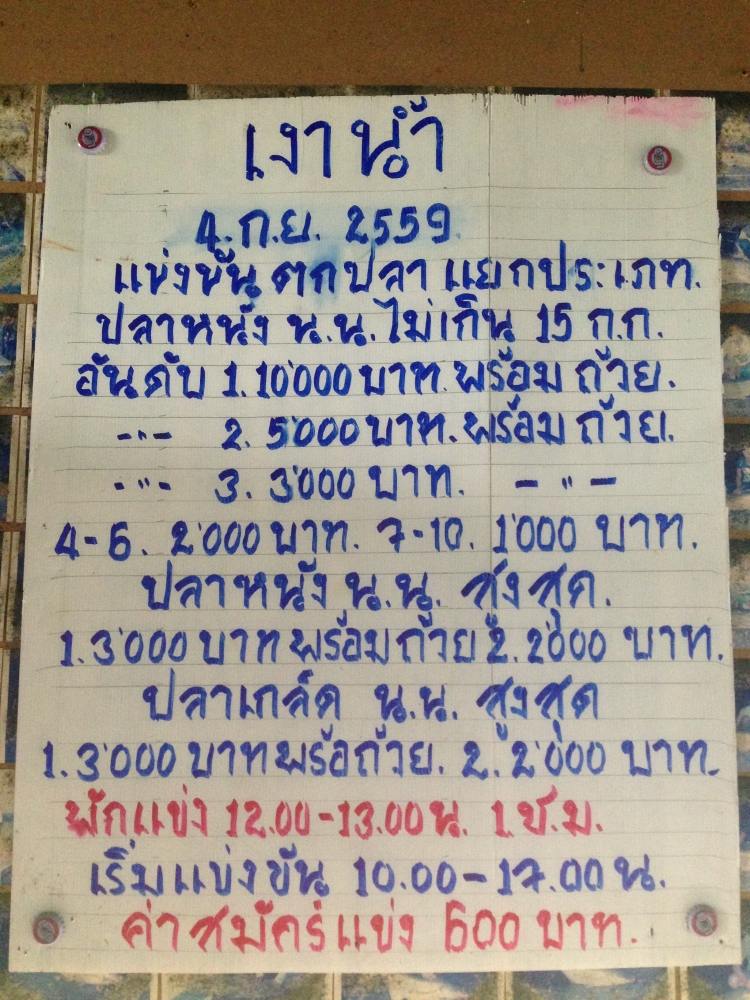 เงาน้ำ
4. ก.ย. 2559.
แข่งขัน ตกปลา แยกประเภท.
ปลาหนัง น.น. ไม่เกิน 15 ก.ก.
อันดับ 1. 10'000 บาท. พร้อม ถ้วย.
-"- 2. 5'000 บาท. พร้อม ถ้วย.
-"- 3. 3'000 บาท. -"-
4-6. 2'000 บาท. 7-10. 1'000 บาท.
ปลาหนัง น.น. สูงสุด.
1. 3'000 บาท พร้อม ถ้วย 2. 2'000 บาท.
ปลาเกล็ด น.น. สูงสุด
1. 3'000 บาท พร้อถ้วย. 2. 2'000 บาท.
พักแข่ง 12.00-13.00 น. 1 ช.ม.
เริ่มแข่งขัน 10.00-17.00 น.
ค่าสมัคร์แข่ง 600 บาท.